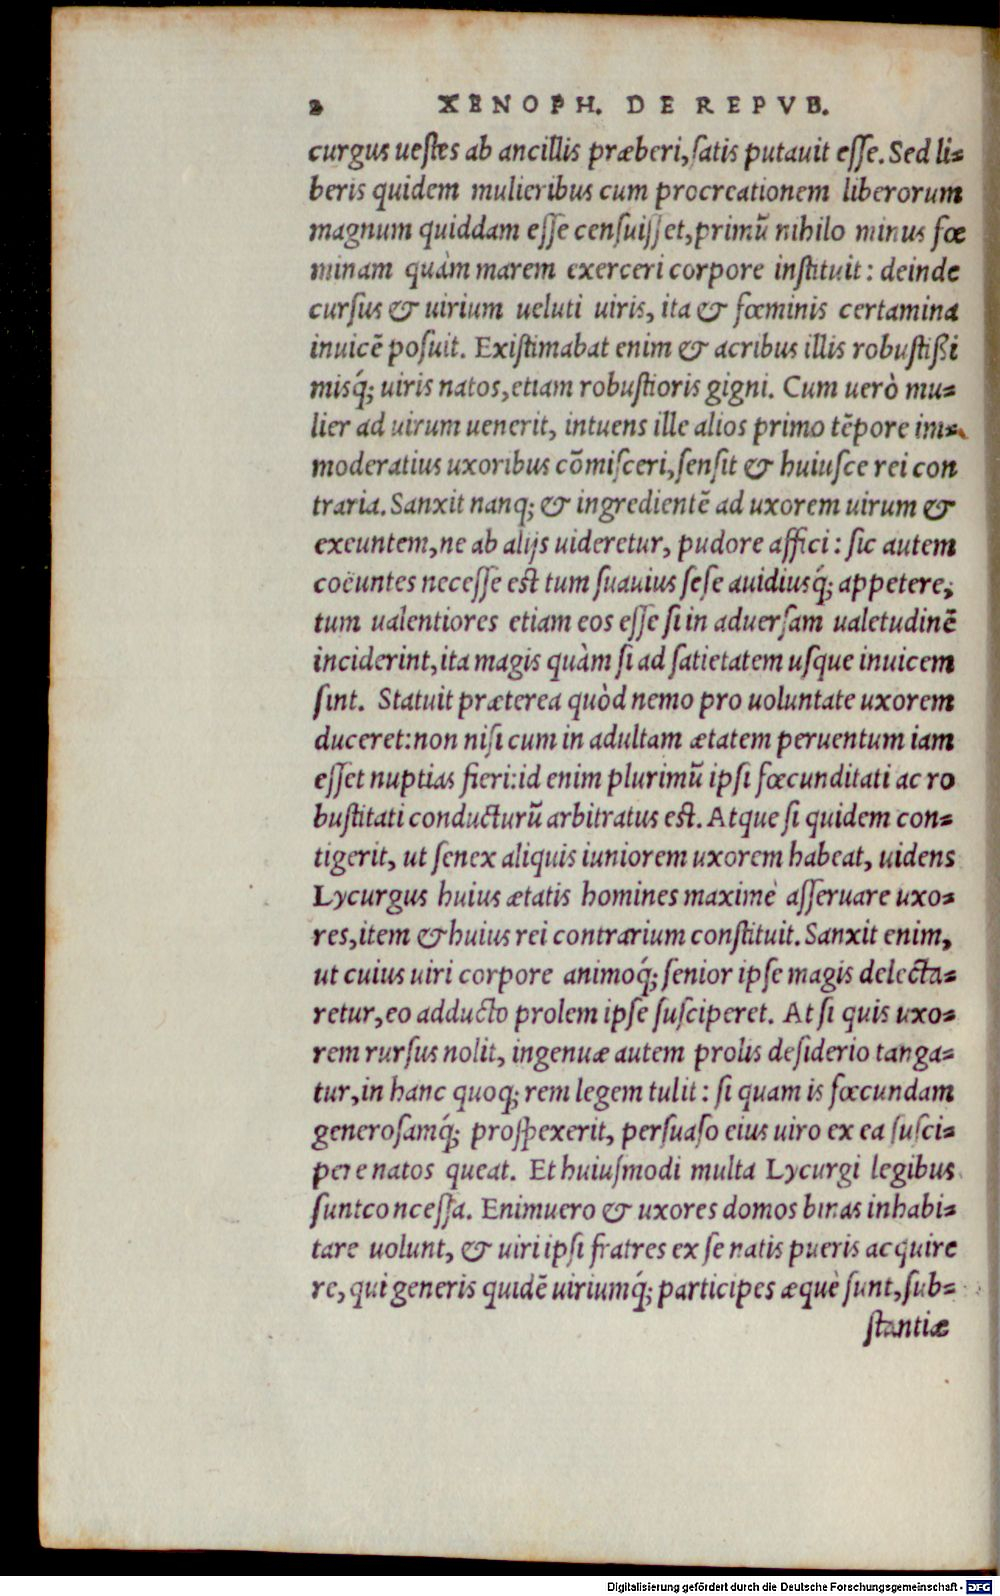 2 XENOPH. DE REPVB.
curgus uestes ab ancillis præberi, satis putauit esse. Sed li-
beris quidem mulieribus cum procreationem liberorum
magnum quiddam esse censuisset, primũ nihilo minus fœ
minam quàm marem exerceri corpore instituit: deinde
cursus & uirium ueluti uiris, ita & fœminis certamina
inuicẽ posuit. Existimabat enim & acribus illis robustißi
misq́; uiris natos, etiam robustioris gigni. Cum uerò mu-
lier ad uirum uenerit, intuens ille alios primo tẽpore im-
moderatius uxoribus cõmisceri, sensit & huiusce rei con
traria. Sanxit nanq; & ingredientẽ ad uxorem uirum &
exeuntem, ne ab alijs uideretur, pudore affici: sic autem
coëuntes necesse est tum suauius sese auidiusq́; appetere;
tum ualentiores etiam eos esse si in aduersam ualetudinẽ
inciderint, ita magis quàm si ad satietatem usque inuicem
sint. Statuit præterea quòd nemo pro uoluntate uxorem
duceret: non nisi cum in adultam ætatem peruentum iam
esset nuptias fieri: id enim plurimũ ipsi fœcunditati ac ro
bustitati conducturũ arbitratus est. Atque si quidem con-
tigerit, ut senex aliquis iuniorem uxorem habeat, uidens
Lycurgus huius ætatis homines maximè asseruare uxo-
res, item & huius rei contrarium constituit. Sanxit enim,
ut cuius uiri corpore animoq́; senior ipse magis delecta-
retur, eo adducto prolem ipse susciperet. At si quis uxo-
rem rursus nolit, ingenuæ autem prolis desiderio tanga-
tur, in hanc quoq; rem legem tulit: si quam is fœcundam
generosamq́; prospexerit, persuaso eius uiro ex ea susci-
pere natos queat. Et huiusmodi multa Lycurgi legibus
sunt concessa. Enimuero & uxores domos binas inhabi-
tare uolunt, & uiri ipsi fratres ex se natis pueris acquire
re, qui generis quidẽ uiriumq́; participes æquè sunt, sub-
stantiæ
Digitalisierung gefördert durch die Deutsche Forschungsgemeinschaft - DFG